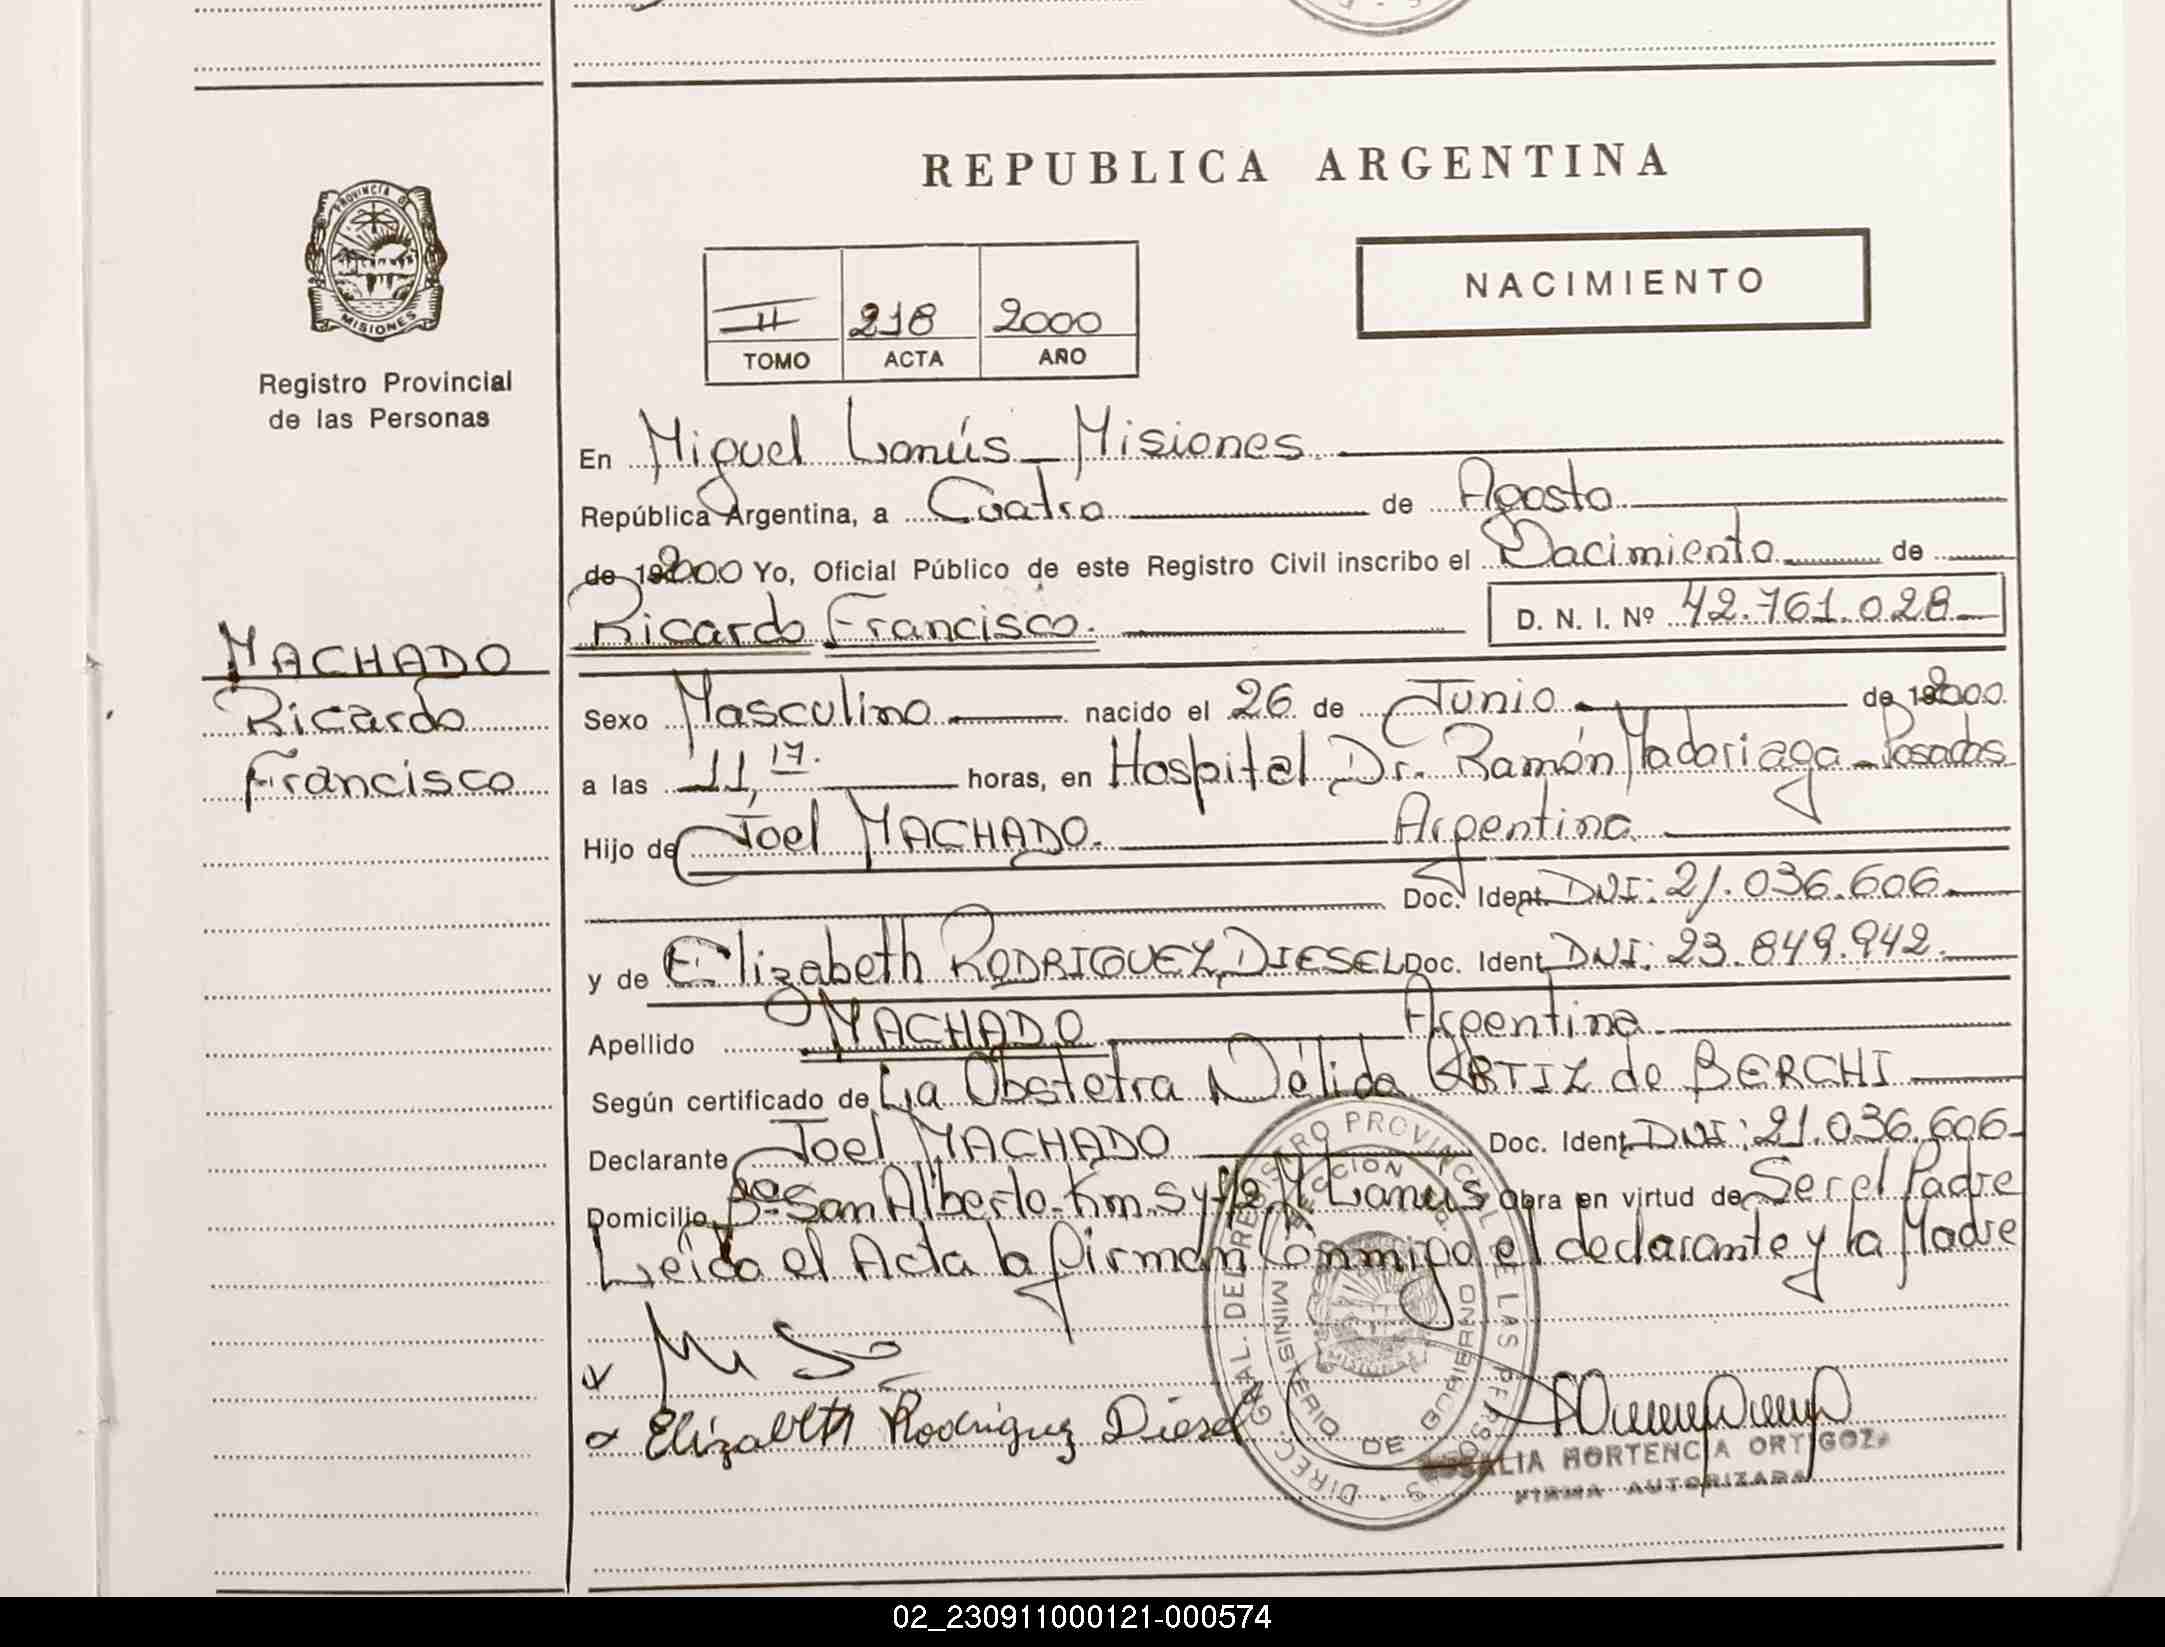 REPUBLICA ARGENTINA
PROVINCIA D
MISIONES
Registro Provincial
de las Personas
NACIMIENTO
II 218 2000
TOMO ACTA AÑO
En Miguel Lanús - Misiones.
República Argentina, a Cuatro de Agosto
de 192000 Yo, Oficial Público de este Registro Civil inscribo el Nacimiento de
Ricardo Francisco. D. N. I. Nº 42.761.028
MACHADO
Ricardo
Francisco
Sexo Masculino nacido el 26 de Junio de 192000.
a las 11,17. horas, en Hospital Dr. Ramón Madariaga - Posadas
Hijo de Joel MACHADO. Argentina
Doc. Ident. DNI: 21.036.606
y de Elizabeth RODRIGUEZ DIESEL Doc. Ident. DNI: 23.849.942.
Apellido MACHADO Argentina
Según certificado de La Obstetra Nélida ORTIZ de BERCHI
Declarante Joel MACHADO Doc. Ident. DNI: 21.036.606
Domicilio Bº San Alberto - Km. 5 y 1/2 M Lanús Obra en virtud de Ser el Padre
Leída el Acta la firman Conmigo el declarante y la Madre
Elizabeth Rodriguez Diesel
DIREC. GRAL. DEL REGISTRO PROVINCIAL DE LAS PERSONAS
MINISTERIO DE GOBIERNO
MISIONES
HORTENCIA ORTIGOZA
FIRMA AUTORIZADA
02_230911000121-000574